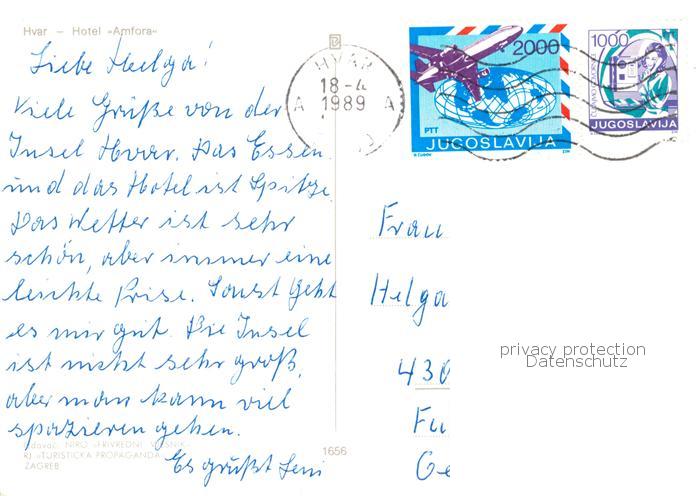 Hvar – Hotel »Amfora«
Liebe Helga!
Viele Grüße von der
Insel Hvar. Das Essen
und das Hotel ist Spitze.
Das Wetter ist sehr
schön, aber immer eine
leichte Prise. Sonst geht
es mir gut. Die Insel
ist nicht sehr groß,
aber man kann viel
spazieren gehen.
NIRO »PRIVREDNI VJESNIK«
RJ »TURISTICKA PROPAGANDA«
ZAGREB
Es grüßt Leni
1656
HVAR
18-4
1989
A A
2000
PTT
JUGOSLAVIJA
1000
JUGOSLAVIJA
Frau
Helga
430
Fu
Ge
privacy protection
Datenschutz